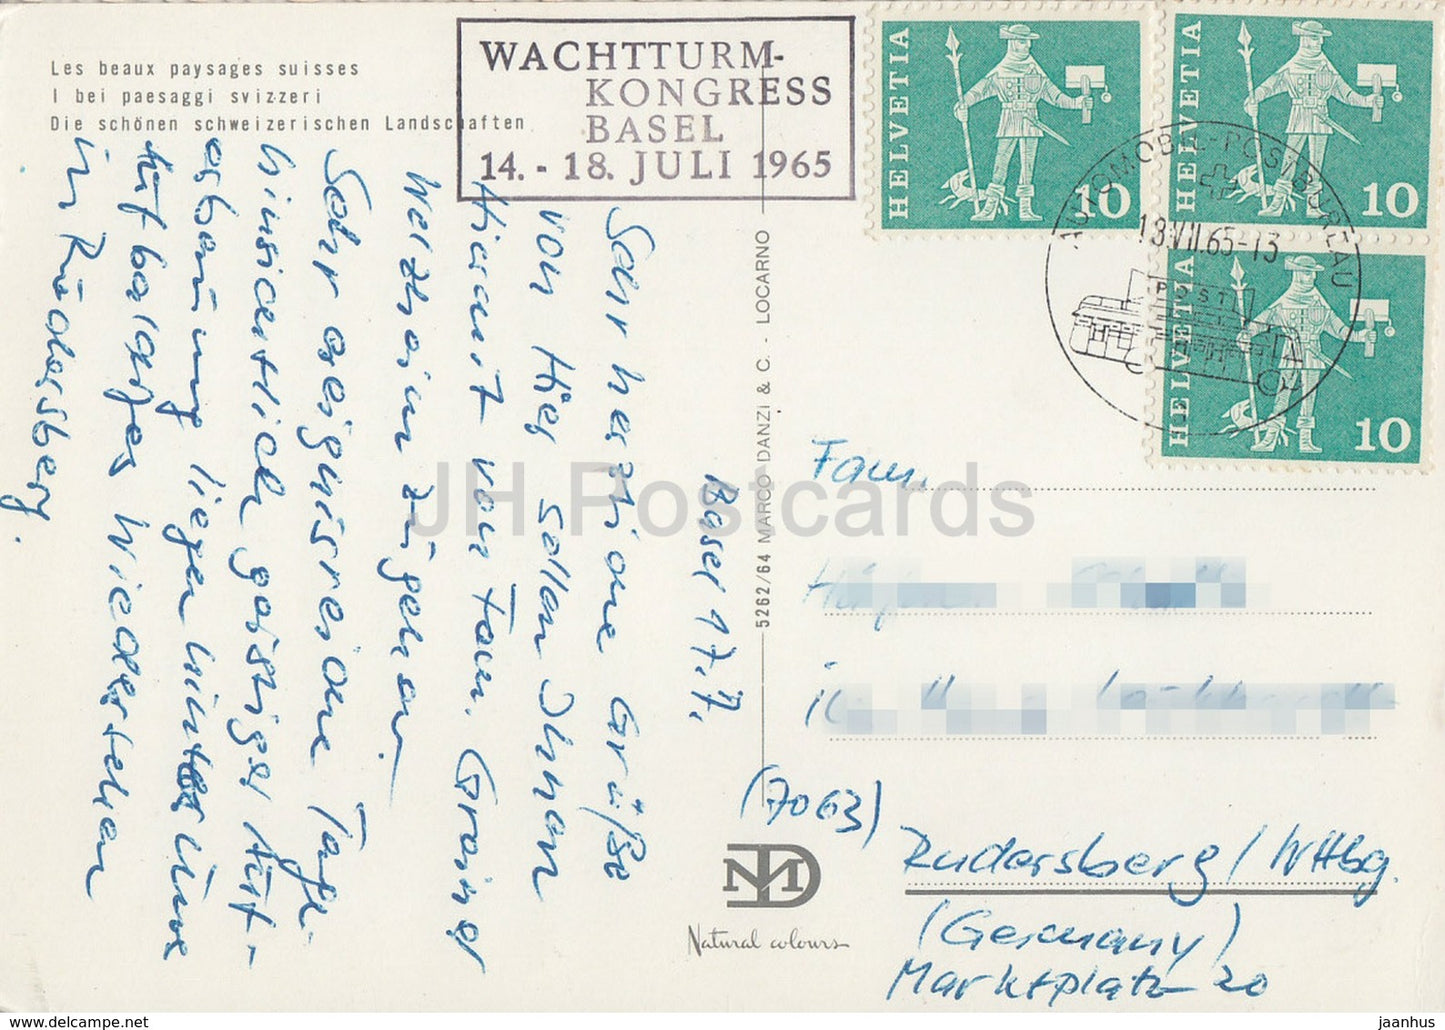 Les beaux paysages suisses
I bei paesaggi svizzeri
Die schönen schweizerischen Landschaften
WACHTTURM-
KONGRESS
BASEL
14. - 18. JULI 1965
HELVETIA 10
HELVETIA 10
HELVETIA 10
AUTOMOBIL-POSTBUREAU
18.VII.65-13
POST
Basel 17.7.
Sehr herzliche Grüße
von hier sollen Ihnen
hiermit von Fam. Greiner
Welzheim zugehen.
Sehr ereignisreiche Tage
hinsichtlich geistiger Auf-
erbauung liegen hinter uns
Auf baldiges Wiedersehen
in Rudersberg.
5262/64 MARCO DANZI & C. - LOCARNO
Fam.
(7063)
Rudersberg/Wttbg.
(Germany)
Marktplatz 20
Natural colours
JH Postcards
jaanhus.com